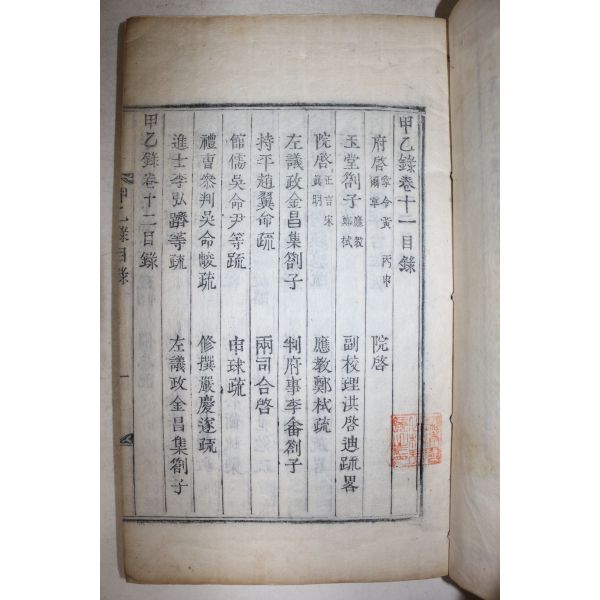 甲乙錄卷十一目錄
府啓 掌令黃爾章 丙申 院啓
玉堂劄子 應敎鄭栻 副校理洪啓迪疏畧
院啓 正言宋眞明 應敎鄭栻疏
左議政金昌集劄子 判府事李畬劄子
持平趙翼命疏 兩司合啓
館儒吳命尹等疏 申球疏
禮曹參判吳命峻疏 修撰嚴慶遂疏
進士李弘躋等疏 左議政金昌集劄子
甲乙錄卷十二目錄
甲乙錄目錄 一